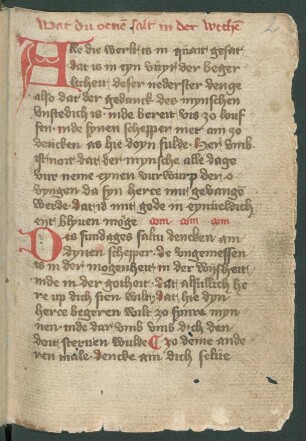 Wat du oeuen salt in der wechen
2
Alle die werlt is in quait gesat
dat is in eyn vuyr der beger
licheit deser nederster denge
also dat der gedanck des mynschen
vnstedich is inde bereit vis zo louf
fen inde synen schepper met am zo
dencken as hie doyn sulde Her vmb
ist noit dat der mynsche alle dage
vur neme eynen vurwurp der o
vyngen da syn hertze mit gevange
werde dat id mit gode in eynueldich
eit blyuen moge
Dis sundages saltu dencken am
dynen schepper de vngemessen
is in der mogenheit in der wijsheit
inde in der gotheit dat alsulich he
re up dich sien wilt dat hie dyn
hertze begeren wilt zo synre myn
nen inde dar vmb vmb dich den
doit steruen wulde Zo deme ande
ren male dencke am dich selue